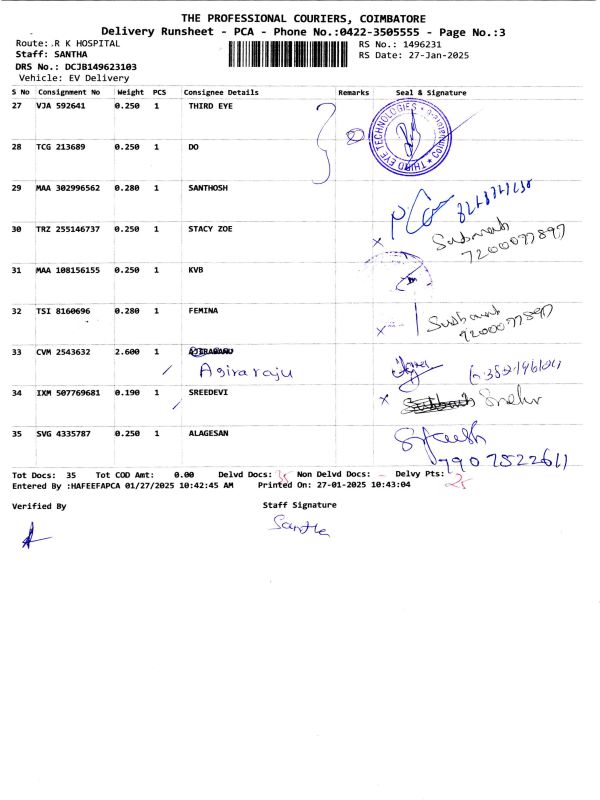 THE PROFESSIONAL COURIERS, COIMBATORE
Delivery Runsheet - PCA - Phone No.:0422-3505555 - Page No.:3
Route: R K HOSPITAL RS No.: 1496231
Staff: SANTHA RS Date: 27-Jan-2025
DRS No.: DCJB149623103
Vehicle: EV Delivery
S No Consignment No Weight PCS Consignee Details Remarks Seal & Signature
27 VJA 592641 0.250 1 THIRD EYE
THIRD EYE TECHNOLOGIES
28 TCG 213689 0.250 1 DO
29 MAA 302996562 0.280 1 SANTHOSH
30 TRZ 255146737 0.250 1 STACY ZOE
7200077897
31 MAA 108156155 0.250 1 KVB
32 TSI 8160696 0.280 1 FEMINA
7200077897
33 CVM 2543632 2.600 1
Agiraraju
34 IXM 507769681 0.190 1 SREEDEVI
35 SVG 4335787 0.250 1 ALAGESAN
7907522611
Tot Docs: 35 Tot COD Amt: 0.00 Delvd Docs: 35 Non Delvd Docs: - Delvy Pts: 25
Entered By :HAFEEFAPCA 01/27/2025 10:42:45 AM Printed On: 27-01-2025 10:43:04
Verified By Staff Signature
Santha